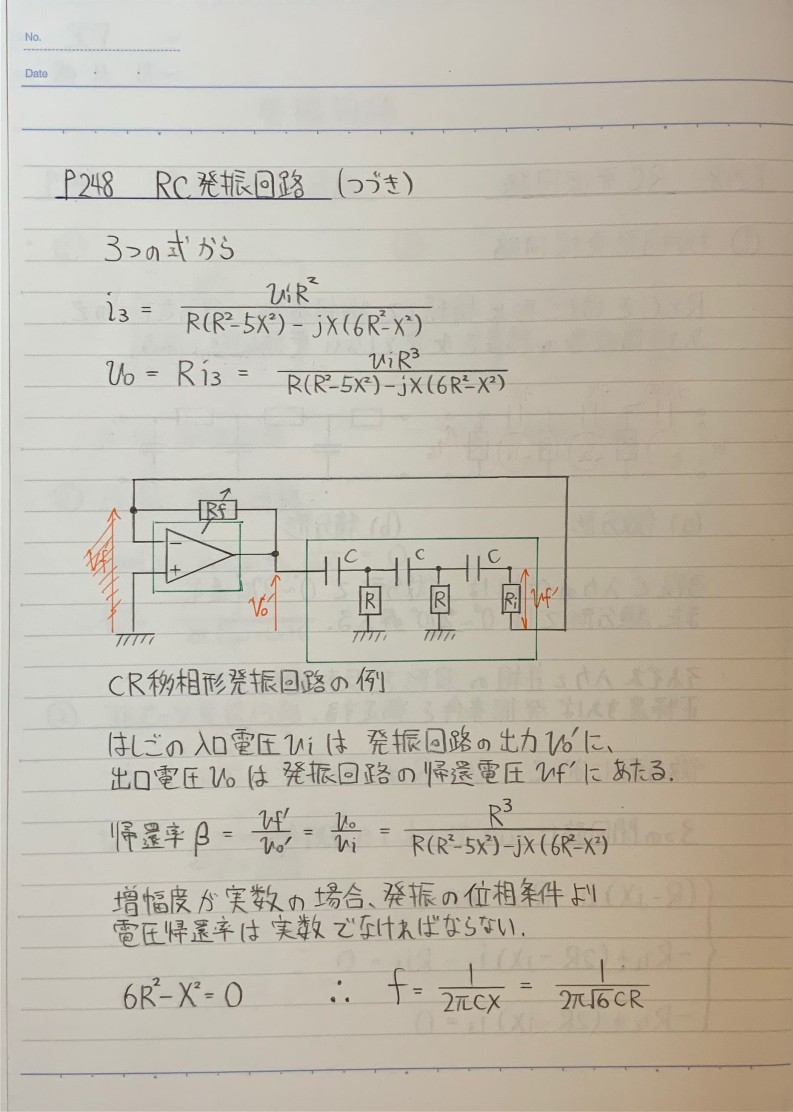 No.
Date
P248 RC発振回路 (つづき)
3つの式から
i₃ = viR² / R(R²-5X²) - jX(6R²-X²)
v₀ = Ri₃ = viR³ / R(R²-5X²)-jX(6R²-X²)
Rf
vf'
-
+
v₀'
C
C
C
R
R
Ri
vf'
CR移相形発振回路の例
はしごの入口電圧viは発振回路の出力v₀'に、
出口電圧v₀は発振回路の帰還電圧vf'にあたる.
帰還率β = vf'/v₀' = v₀/vi = R³ / R(R²-5X²)-jX(6R²-X²)
増幅度が実数の場合、発振の位相条件より
電圧帰還率は実数でなければならない.
6R²-X²=0 ∴ f = 1/2πCX = 1/2π√6CR